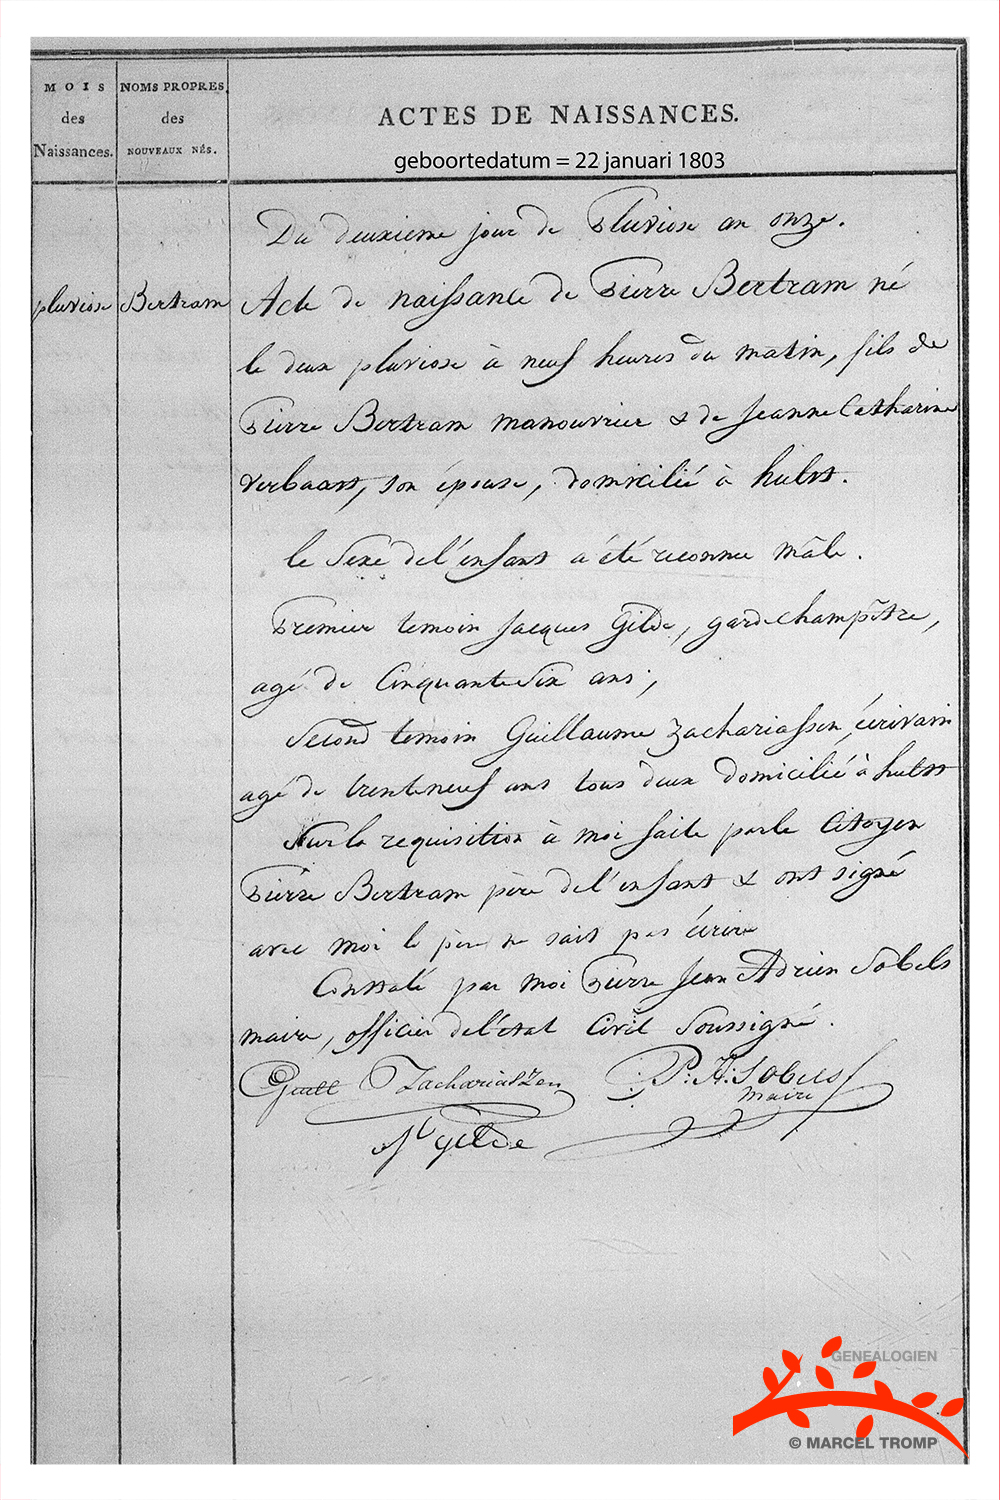 MOIS
des
Naissances.
NOMS PROPRES
des
NOUVEAUX NÉS.
ACTES DE NAISSANCES.
geboortedatum = 22 januari 1803
pluviose
Bertram
Du deuxieme jour de Pluviose an onze.
Acte de naissance de Pierre Bertram né
le deux pluviose à neuf heures du matin, fils de
Pierre Bertram manouvrier & de Jeanne Catharine
Verbaart, son épouse, domicilié à hulst.
le sexe de l'enfant a été reconnu mâle.
Premier temoin Jacques Gilde, garde champêtre,
agé de Cinquante Six ans,
Second temoin Guillaume Zachariassen, écrivain
agé de trente neuf ans tous deux domicilié à hulst
Sur la requisition à moi faite par le Citoyen
Pierre Bertram père de l'enfant & ont signé
avec moi le père ne sait pas écrire
Constaté par moi Pierre Jean Adrien Sobels
maire, officier de l'état Civil Soussigné.
Guill Zachariaszen
P: A: Sobels
maire
Gilde
GENEALOGIEN
© MARCEL TROMP